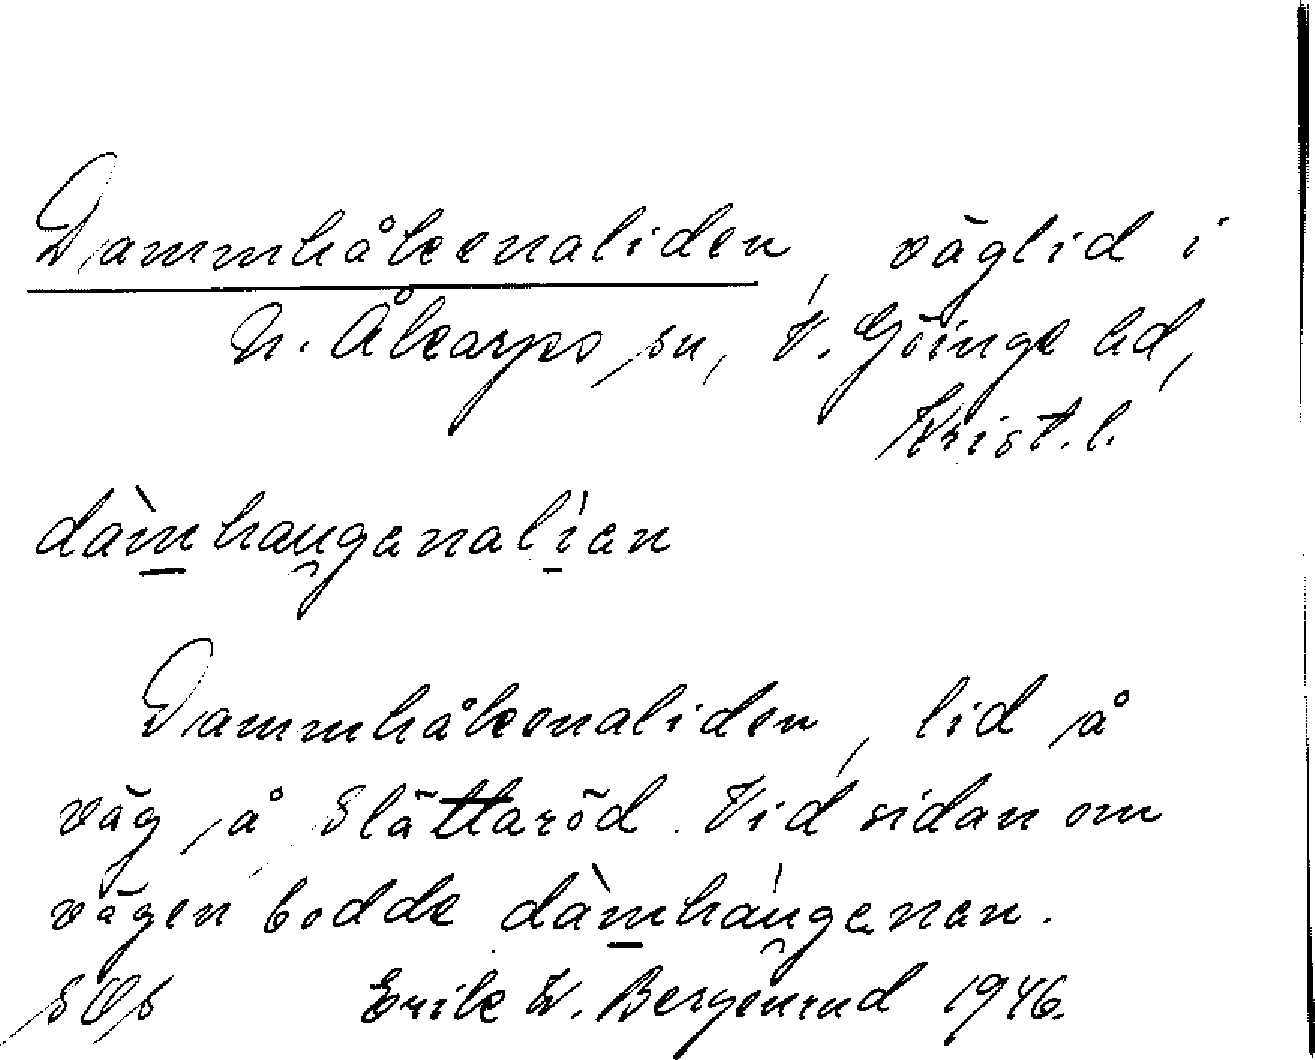 Dammhåkenaliden, väglid i
N. Åkarps sn, V. Göinge hd,
Krist. l.
dàmhaugenalíen
Dammhåkenaliden, lid å
väg å Slättaröd. Vid sidan om
vägen bodde dàmháugenen.
SOS Erik W. Bergenrud 1946